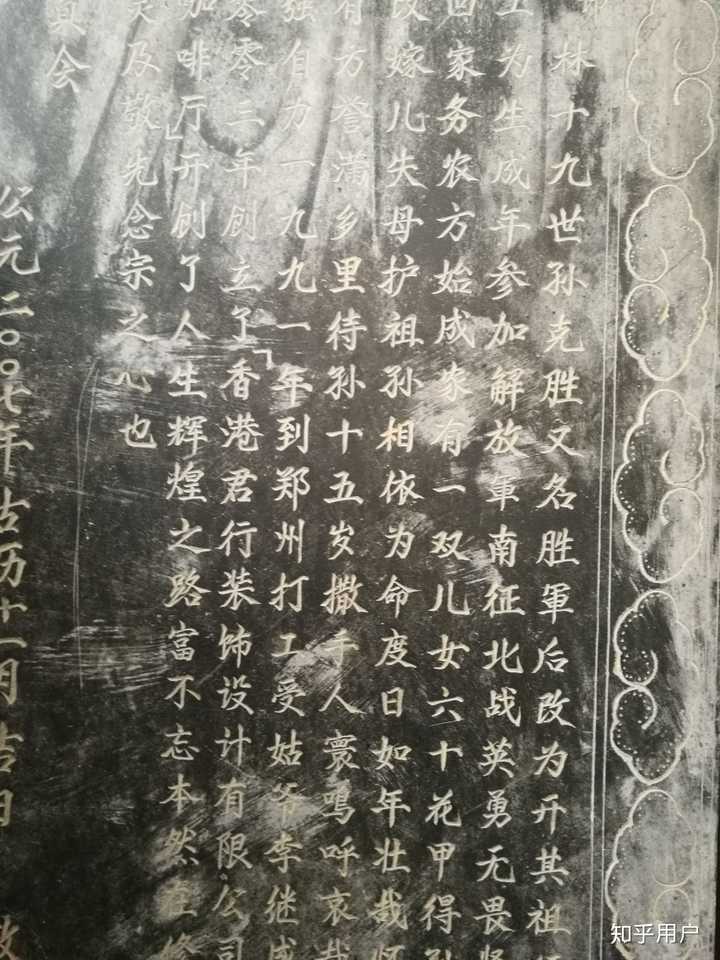 林十九世孙克胜又名胜軍后改为开其祖
工为生成年参加解放軍南征北战英勇无畏
回家务农方始成家有一双儿女六十花甲得孙
改嫁儿失母护祖孙相依为命度日如年壮哉
有方誉满乡里待孙十五岁撒手人寰鸣呼哀哉
强自力一九九一年到郑州打工受姑爷李继成
零零三年创立了「香港君行装饰设计有限公司
咖啡厅」开创了人生辉煌之路富不忘本然在修
及敬先念宗之心也
真会
公元二〇〇七年古历十一月吉日
知乎用户